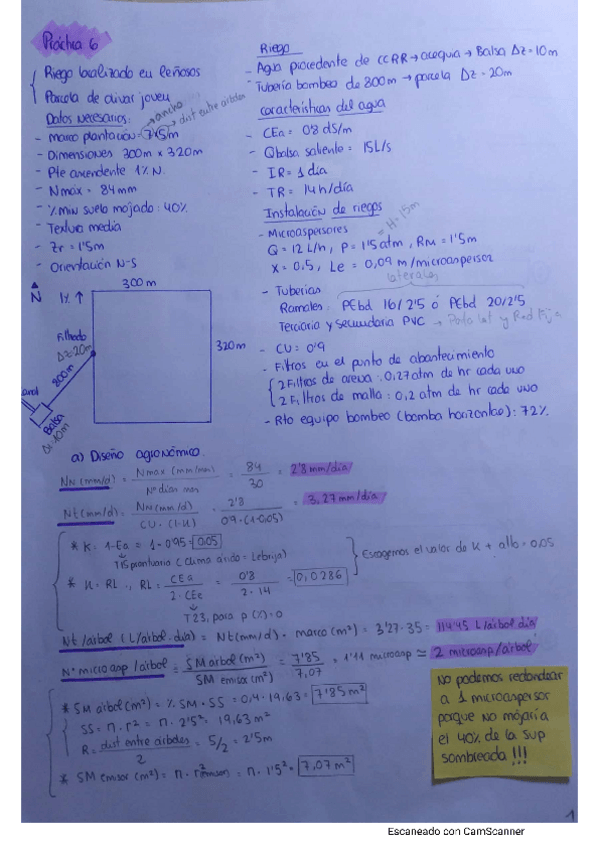 Práctica 6
Riego localizado en leñosos
Parcela de olivar joven
Datos necesarios:
- Marco plantación = 7x5m → ancho → dist entre árboles
- Dimensiones 300m x 320m
- Pte ascendente 1% N.
- Nmáx = 84mm
- % min suelo mojado: 40%
- Textura media
- Zr = 1'5m
- Orientación N-S
Riego
- Agua procedente de CCRR → acequia → Balsa Δz = 10m
- Tubería bombeo de 800m → parcela Δz = 20m
Características del agua
- CEa = 0'8 dS/m
- Qbalsa saliente = 15L/s
- IR = 1 día
- TR = 14h/día
Instalación de riegos
- Microaspersores
= H = 15m
Q = 12 L/h, P = 1'5 atm, Rm = 1'5m
X = 0.5, Le = 0,09 m/microaspersor
laterales
- Tuberías
Ramales: PEbd 16/2'5 ó PEbd 20/2'5
Terciaria y Secundaria PVC → Porta lat y Red Fija
- CU = 0'9
- Filtros en el punto de abastecimiento
2 Filtros de arena: 0,27atm de hr cada uno
2 Filtros de malla: 0,2 atm de hr cada uno
- Rto equipo bombeo (bomba horizontal): 72%
N
1% ↑
300 m
320m
Filtrado
Δz=20m
800m
Balsa
Δz=10m
a) Diseño agronómico.
Nn (mm/d) = Nmax (mm/mm) / Nº días mm = 84 / 30 = 2'8 mm/día
Nt (mm/d) = Nn (mm/d) / CU · (1-K) = 2'8 / 0'9 · (1-0.05) = 3,27 mm/día
* K = 1-Ea = 1-0'95 = 0.05
T15 prontuario (clima árido = Lebrija)
* K = RL, RL = CEa / 2·CEe = 0'8 / 2·14 = 0,0286
T23, para p (%) = 0
Escogemos el valor de K + alto = 0,05
Nt/árbol (L/árbol·día) = Nt (mm/d) · marco (m²) = 3'27·35 = 114'45 L/árbol día
Nº microasp/árbol = SM árbol (m²) / SM emisor (m²) = 7'85 / 7,07 = 1'11 microasp ≃ 2 microasp/árbol
* SM árbol (m²) = % SM · SS = 0,4 · 19,63 = 7'85 m²
SS = π · r² = π · 2'5² = 19,63 m²
R = dist entre árboles / 2 = 5/2 = 2'5m
* SM emisor (m²) = π · r²emisor = π · 1'5² = 7,07 m²
No podemos redondear
a 1 microaspersor
porque no mojaría
el 40% de la sup
sombreada !!!
1
Escaneado con CamScanner